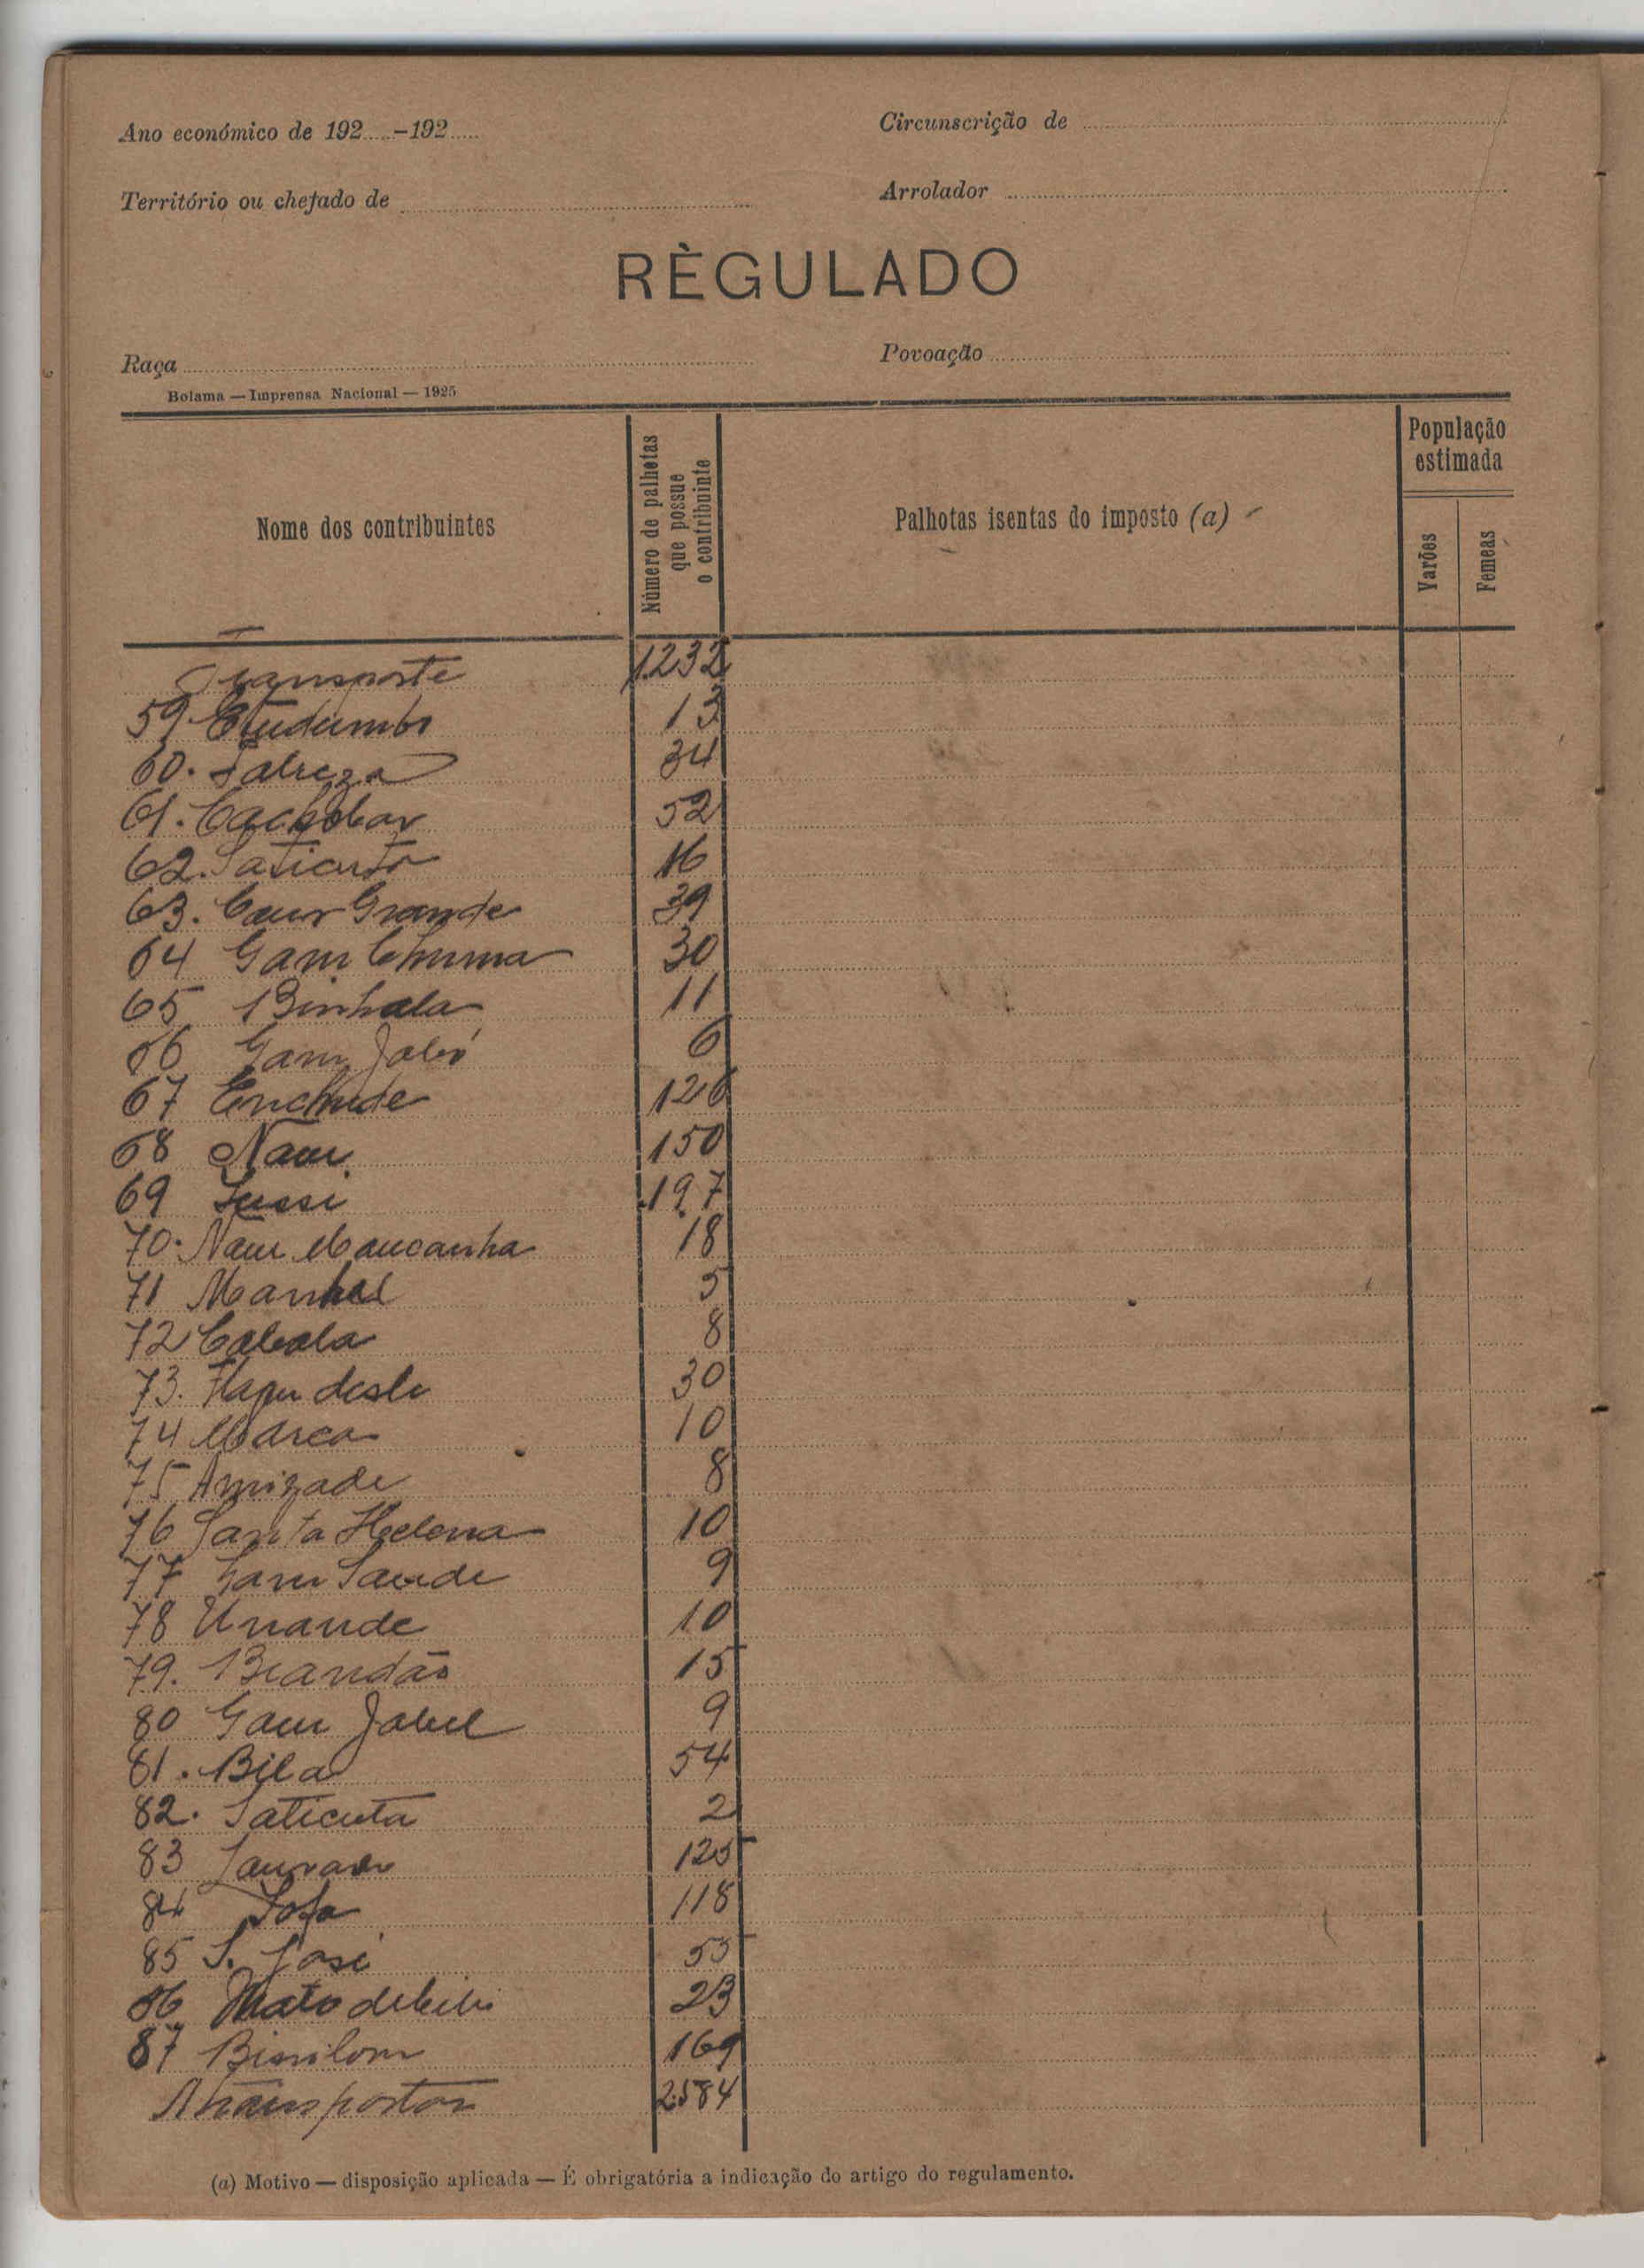 Ano económico de 192.....-192.....
Circunscrição de
Território ou chefado de
Arrolador
RÈGULADO
Raça
Povoação
Bolama — Imprensa Nacional — 1925
Nome dos contribuintes
Número de palhotas que possue o contribuinte
Palhotas isentas do imposto (a)
População estimada
Varões
Femeas
Transporte 1.232
59. 13
60. 34
61. 52
62. Saticuta 16
63. Caur Grande 39
64 Gam Chuma 30
65 Binhala 11
66 Gam 6
67 Enchude 126
68 Naur 150
69 Jussi 197
70. Naur Mancanha 18
71 5
72 Cabala 8
73. 30
74 10
75 Amizade 8
76 Santa Helena 10
77 Saude 9
78 Unande 10
79. Brandão 15
80 Gam Jabel 9
81. Bila 54
82. Saticuta 2
83 125
84 118
85 S. José 55
86 Mato 23
87 Bissilom 169
A transportar 2.584
(a) Motivo — disposição aplicada — É obrigatória a indicação do artigo do regulamento.